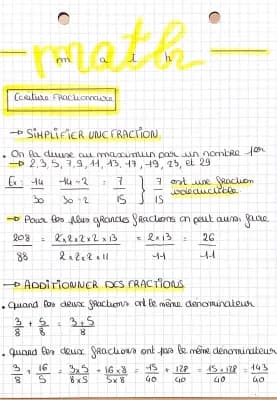 math
m a t h
Écriture Fractionnaire
→ SIMPLIFIER UNE FRACTION
• On la divise au maximum par un nombre 1er
→ 2, 3, 5, 7, 9, 11, 13, 17, 19, 23, et 29
Ex : 14/30 = 14÷2/30÷2 = 7/15 } 7/15 est une fraction irréductible
→ Pour les plus grandes fractions on peut aussi faire
208/88 = 2x2x2x2x13/2x2x2x11 = 2x13/11 = 26/11
→ ADDITIONNER DES FRACTIONS
• Quand les deux fractions ont le même dénominateur
3/8 + 5/8 = 3+5/8
• Quand les deux fractions ont pas le même dénominateur
3/8 + 16/5 = 3x5/8x5 + 16x8/5x8 = 15/40 + 128/40 = 15+128/40 = 143/40